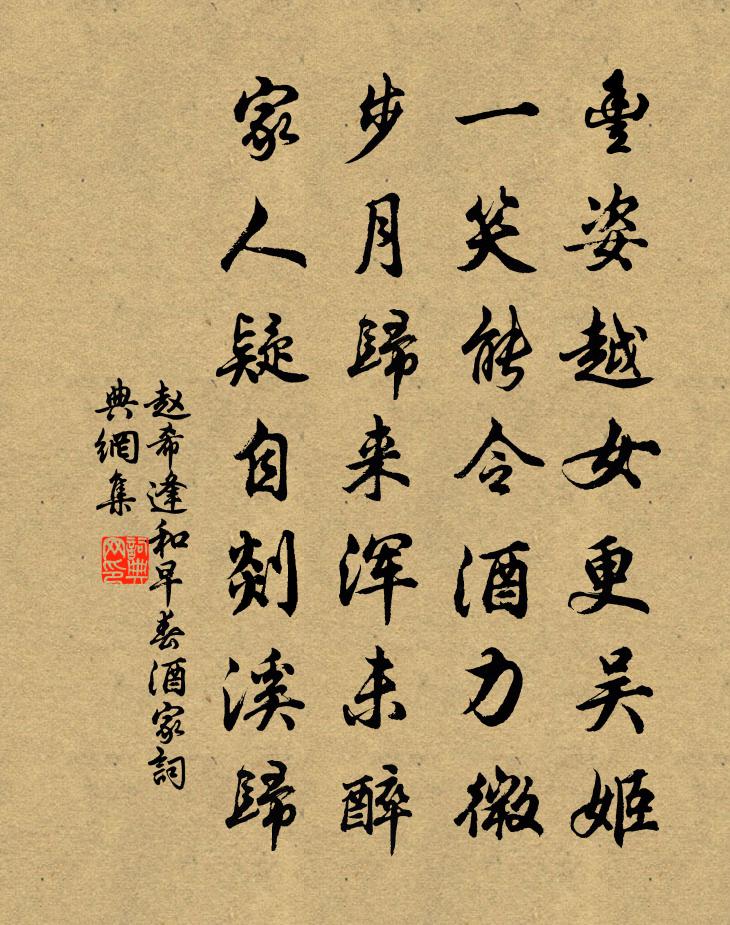 豐姿越女更吴姬
一笑能令酒力微
步月歸来浑未醉
家人疑自剡溪歸
赵希逢和早春酒家詞
典網集
詞典网印